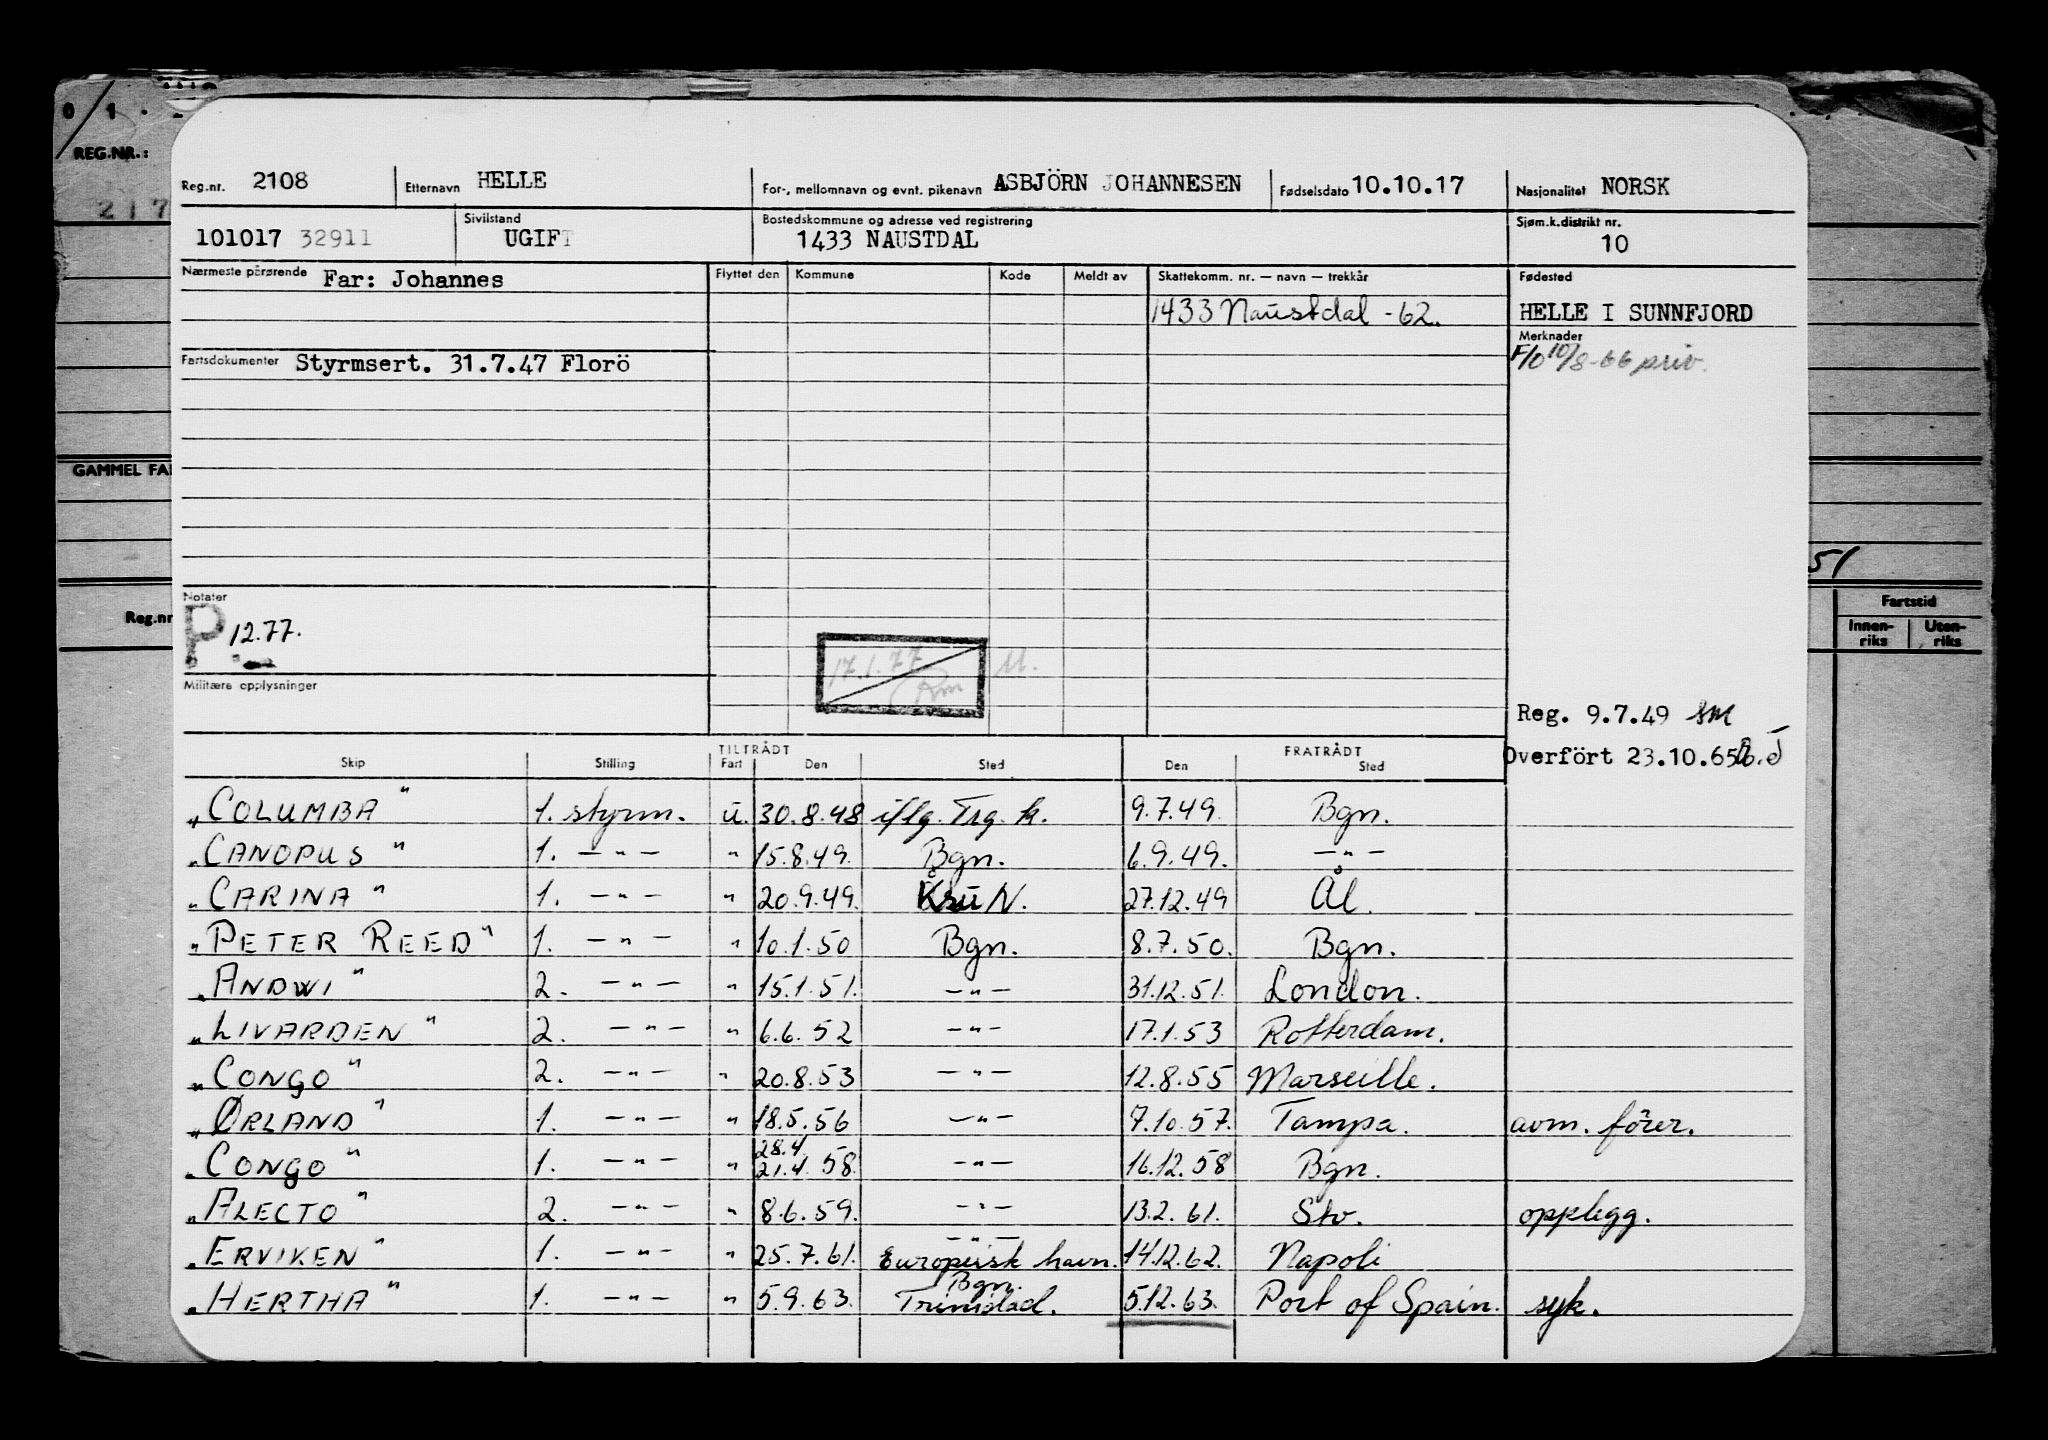 0/1.
REG.NR.:
217
GAMMEL FA
Reg.nr
Reg.nr. 2108 Etternavn HELLE For-, mellomnavn og evnt. pikenavn ASBJÖRN JOHANNESEN Fødselsdato 10.10.17 Nasjonalitet NORSK
101017 32911 Sivilstand UGIFT Bostedskommune og adresse ved registrering 1433 NAUSTDAL Sjøm.k.distrikt nr. 10
Nærmeste pårørende Far: Johannes Flyttet den Kommune Kode Meldt av Skattekomm. nr. — navn — trekkår Fødested
1433 Naustdal -62. HELLE I SUNNFJORD
Merknader
Fartsdokumenter Styrmsert. 31.7.47 Florö F/O 10/8-66 priv.
51
Notater
P 12.77.
17.1.77
Militære opplysninger
Fartstid
Innen-riks Uten-riks
Reg. 9.7.49 SM
Overfört 23.10.65
TILTRÅDT FRATRÅDT
Skip Stilling Fart Den Sted Den Sted
"COLUMBA" 1. styrm. u. 30.8.48 iflg. Trg. k. 9.7.49. Bgn.
"CANOPUS" 1. —"— " 15.8.49. Bgn. 6.9.49. —"—
"CARINA" 1. —"— " 20.9.49. KrsuN. 27.12.49 Ål.
"PETER REED" 1. —"— " 10.1.50 Bgn. 8.7.50. Bgn.
"ANDWI" 2. —"— " 15.1.51. —"— 31.12.51. London.
"LIVARDEN" 2. —"— " 6.6.52 —"— 17.1.53 Rotterdam.
"CONGO" 2. —"— " 20.8.53 —"— 12.8.55 Marseille.
"ØRLAND" 1. —"— " 18.5.56 —"— 7.10.57. Tampa. avm. förer.
28.4
"CONGO" 1. —"— " 21.4.58. —"— 16.12.58 Bgn.
"ALECTO" 2. —"— " 8.6.59. —"— 13.2.61. Stv. opplegg.
—"—
"ERVIKEN" 1. —"— " 25.7.61. Europeisk havn. 14.12.62. Napoli
Bgn.
"HERTHA" 1. —"— " 5.9.63. Trinidad. 5.12.63. Port of Spain. syk.